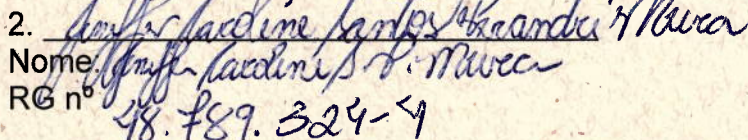 2. Jeniffer Caroline Santos Moura
Nome. Jeniffer Caroline S. V. Moura
RG nº 48.789.324-4